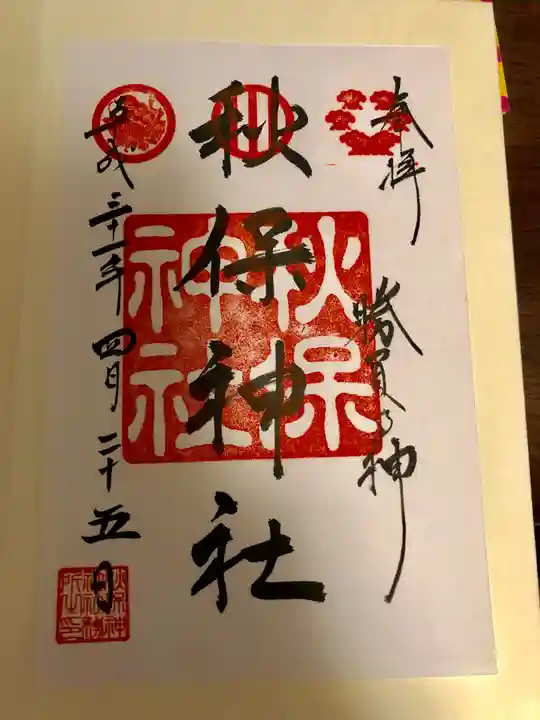 奉拝
勝負の神
秋保神社
秋保
神社
平成三十一年四月二十五日